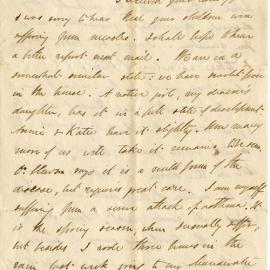 I was sorry to hear that your children were
suffering from measles. I shall hope to hear
a better report next mail. We are in a
somewhat similar state: we have scarlet fever
in the house. A native girl, my deacon's
daughter, has it in a full state of development.
Annie & Katie have it slightly. How many
more of us will take it remains
says it is a mild form of the
disease, but requires great care. I am myself
suffering from a severe attack of asthma. It
is the spring season, when I usually suffer,
but besides I rode three hours in the
rain last week going to my